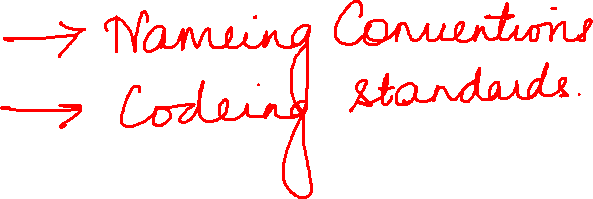 → Nameing Conventions
→ Codeing standards.